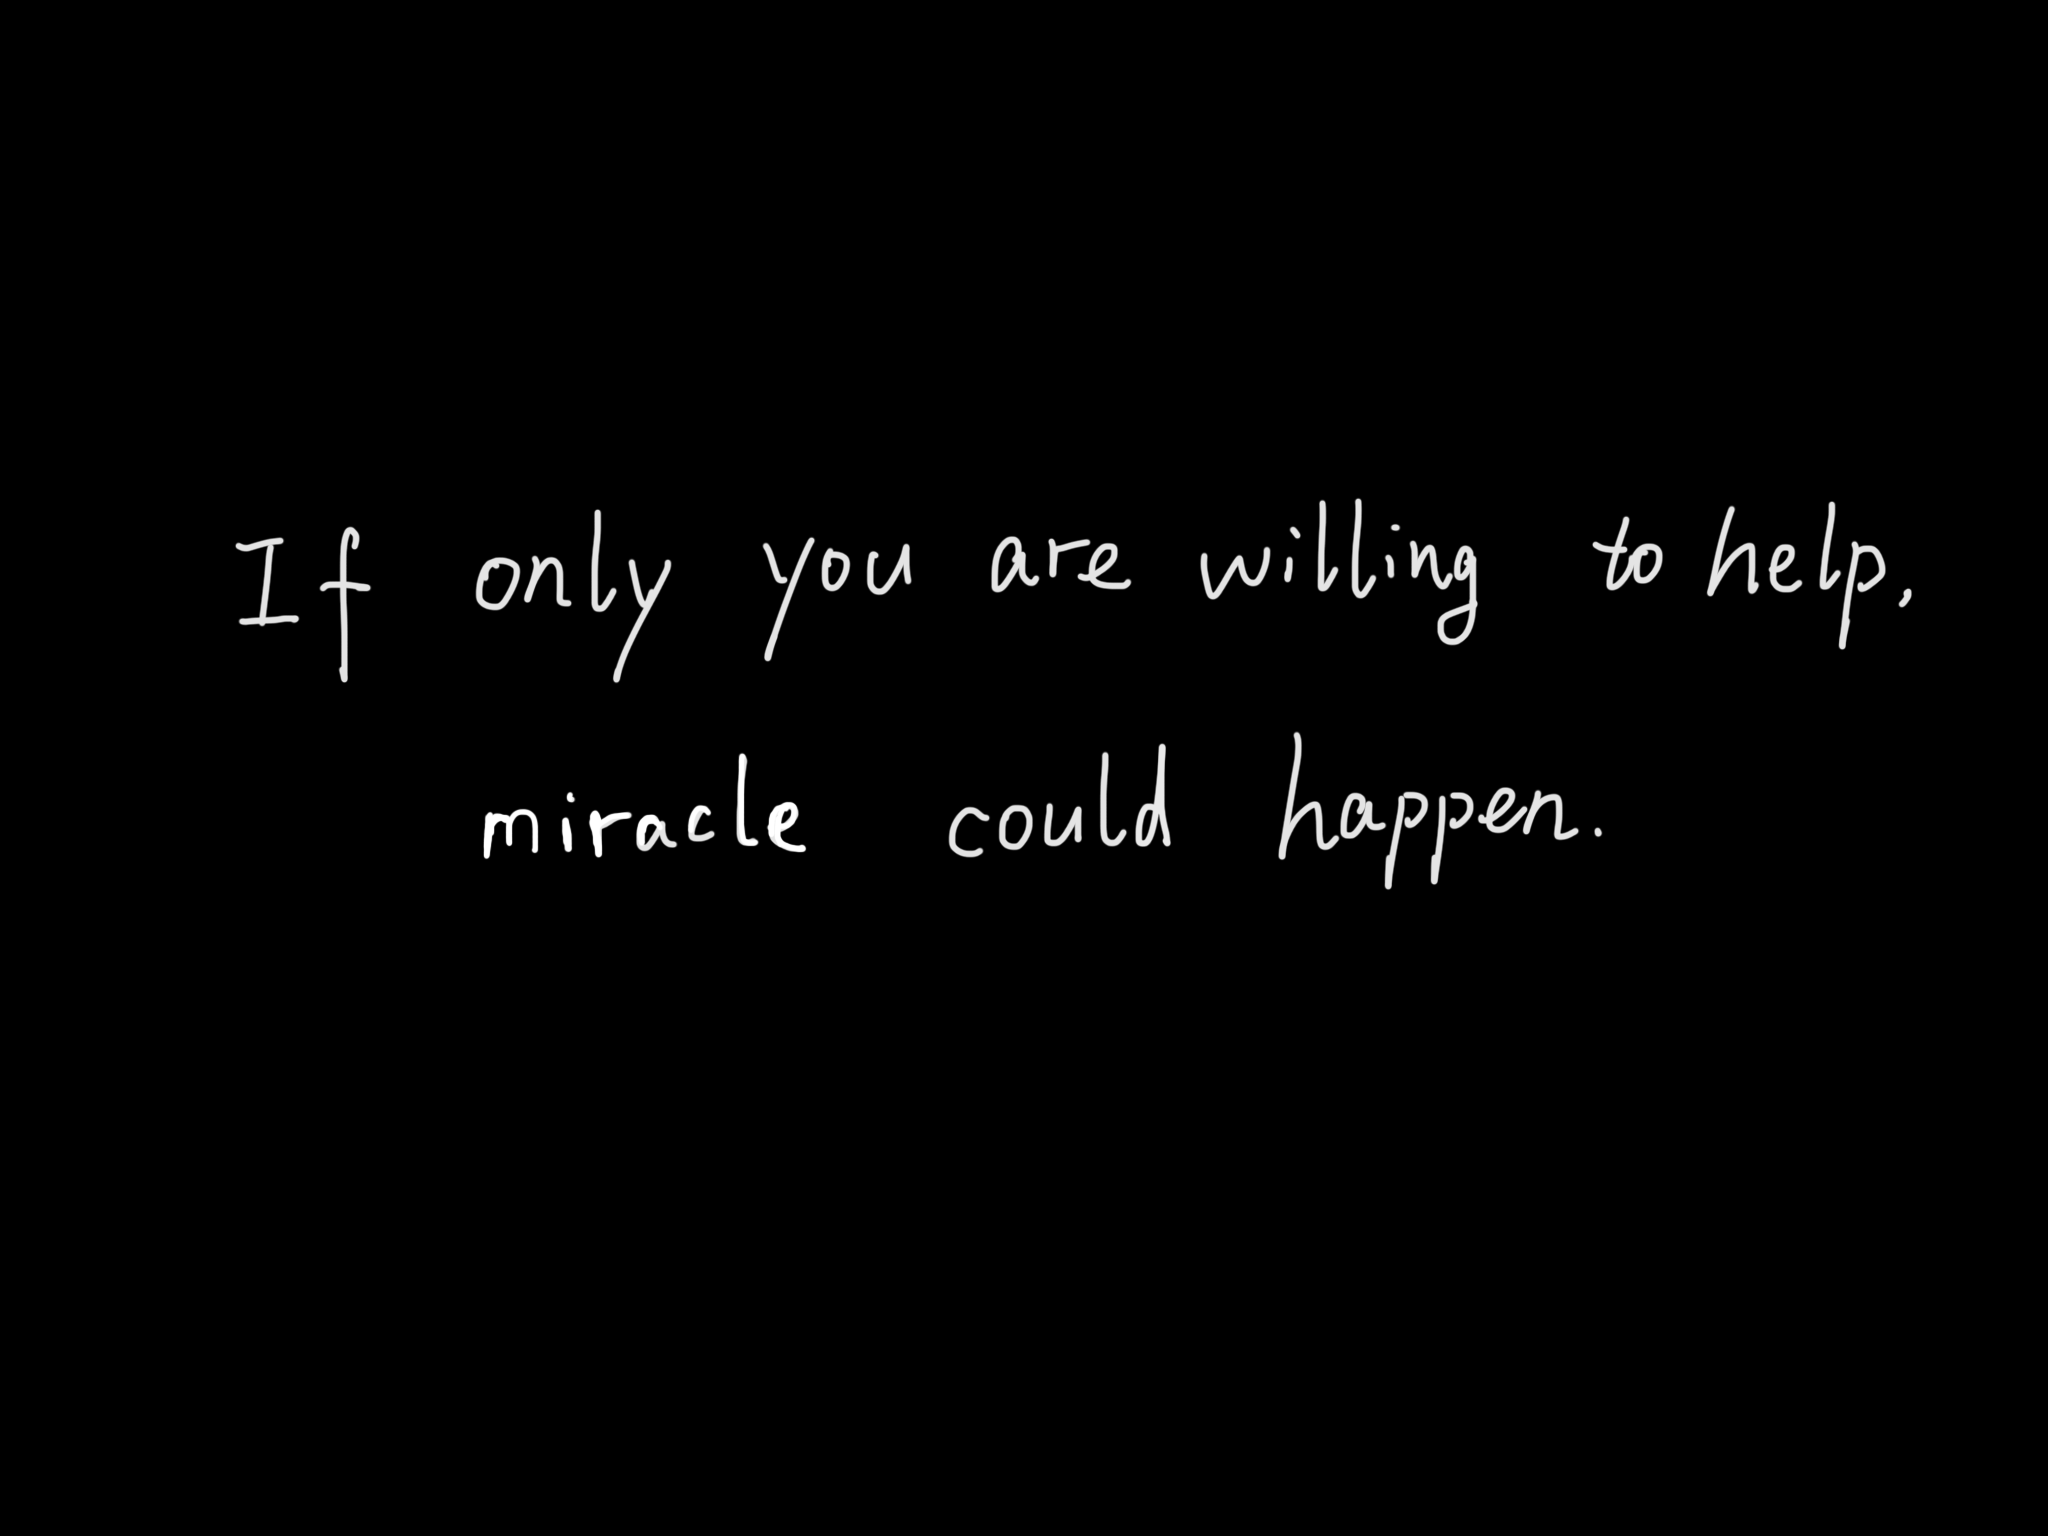 If only you are willing to help,
miracle could happen.